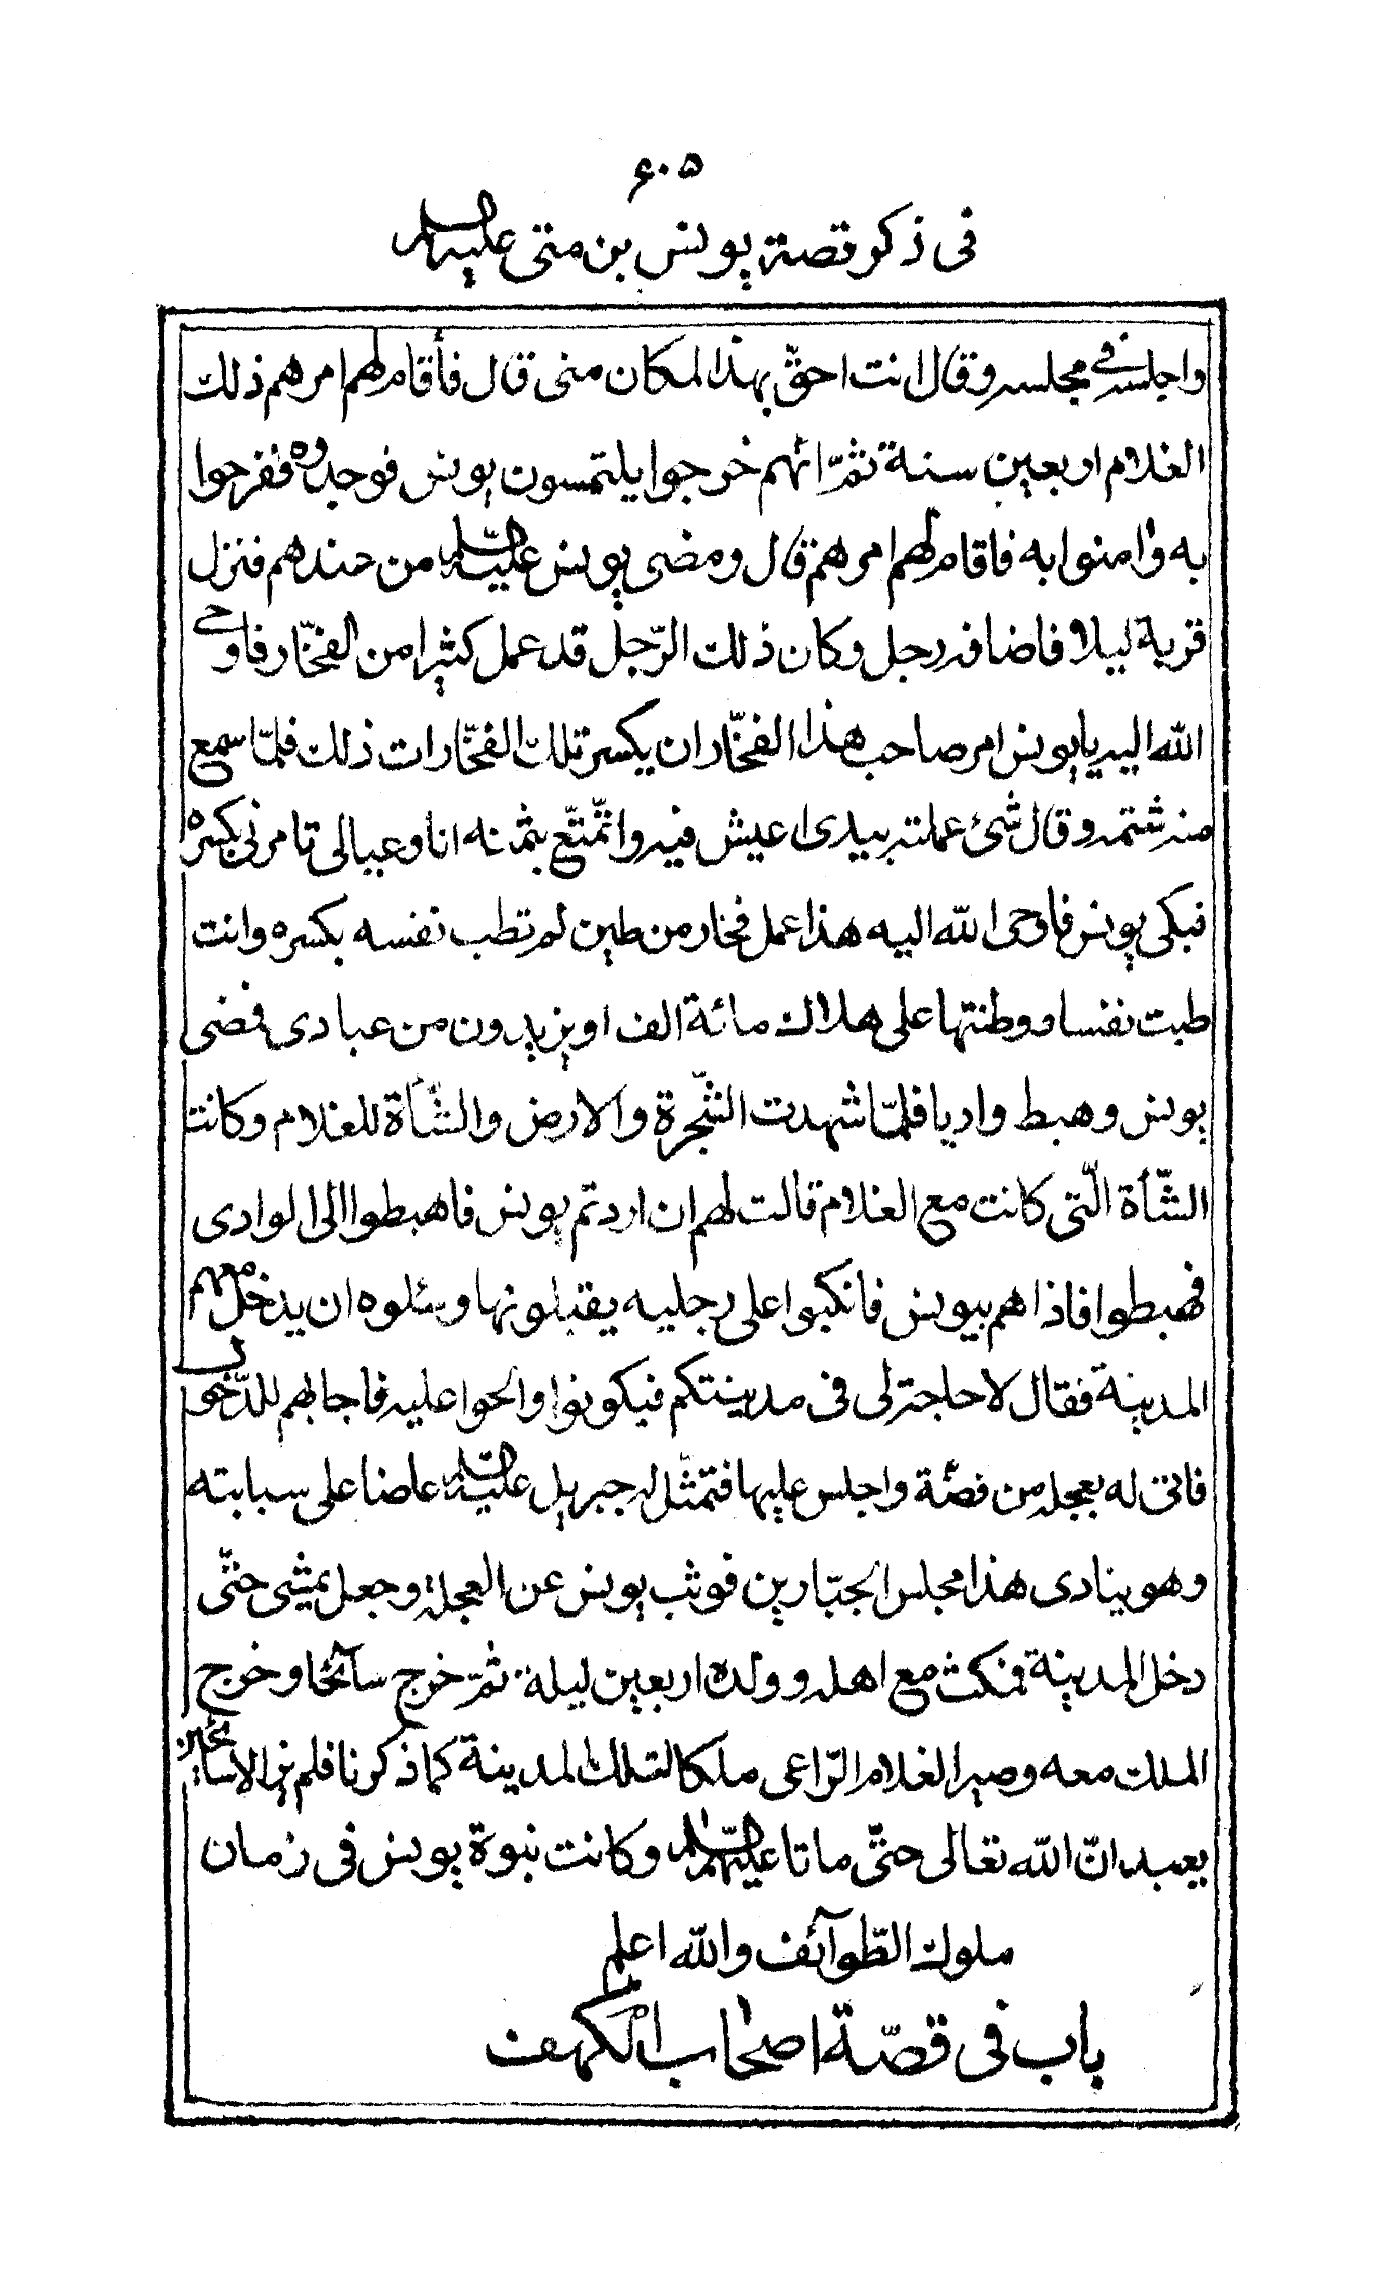 ۶۰۵
فى ذكر قصة يونس بن متى عليه السلام
واجلسه فى مجلسه وقال انت احقّ بهذا المكان منى قال فأقام لهم امرهم ذلك
الغلام اربعين سنة ثمّ انهم خرجوا يلتمسون يونس فوجدوه ففرحوا
به وامنوا به فاقام لهم امرهم قال ومضى يونس عليه السّلام من عندهم فنزل
قرية ليلا فاضافه رجل وكان ذلك الرّجل قد عمل كثيرا من الفخّار فاوحى
الله اليه يا يونس امر صاحب هذا الفخّار ان يكسر تلك الفخّارات ذلك فلمّا سمع
منه شتمه وقال شئ عملته بيدى اعيش فيه واتمّتّع بثمنه انا وعيالى تامرنى بكسره
فبكى يونس فاوحى الله اليه هذا عمل فخار من طين لم تطب نفسه بكسره وانت
طبت نفسا ووطنتها على هلاك مائة الف او يزيدون من عبادى فمضى
يونس وهبط واديا فلمّا شهدت الشّجرة والارض والشّأة للغلام وكانت
الشّأة الّتى كانت مع الغلام قالت لهم ان اردتم يونس فاهبطوا الى الوادى
فهبطوا فاذا هم بيونس فانكبوا على رجليه يقبلونها وسئلوه ان يدخل معهم
المدينة فقال لا حاجة لى فى مدينتكم فبكوا والحوا عليه فاجابهم للدّخول
فاتى له بعجلة من فضّة واجلس عليها فتمثّل له جبريل عليه السّلام عاضا على سبابته
وهو ينادى هذا مجلس الجبّارين فوثب يونس عن العجلة وجعل يمشى حتّى
دخل المدينة فمكث مع اهله وولده اربعين ليلة ثمّ خرج سآئحا وخرج
الملك معه وصير الغلام الرّاعى ملكا لتلك المدينة كما ذكرنا فلم يزالا سائحين
يعبدانّ الله تعالى حتّى ماتا عليهما السّلام وكانت نبوة يونس فى زمان
ملوك الطّوآئف والله اعلم
باب فى قصّة اصحاب الكهف